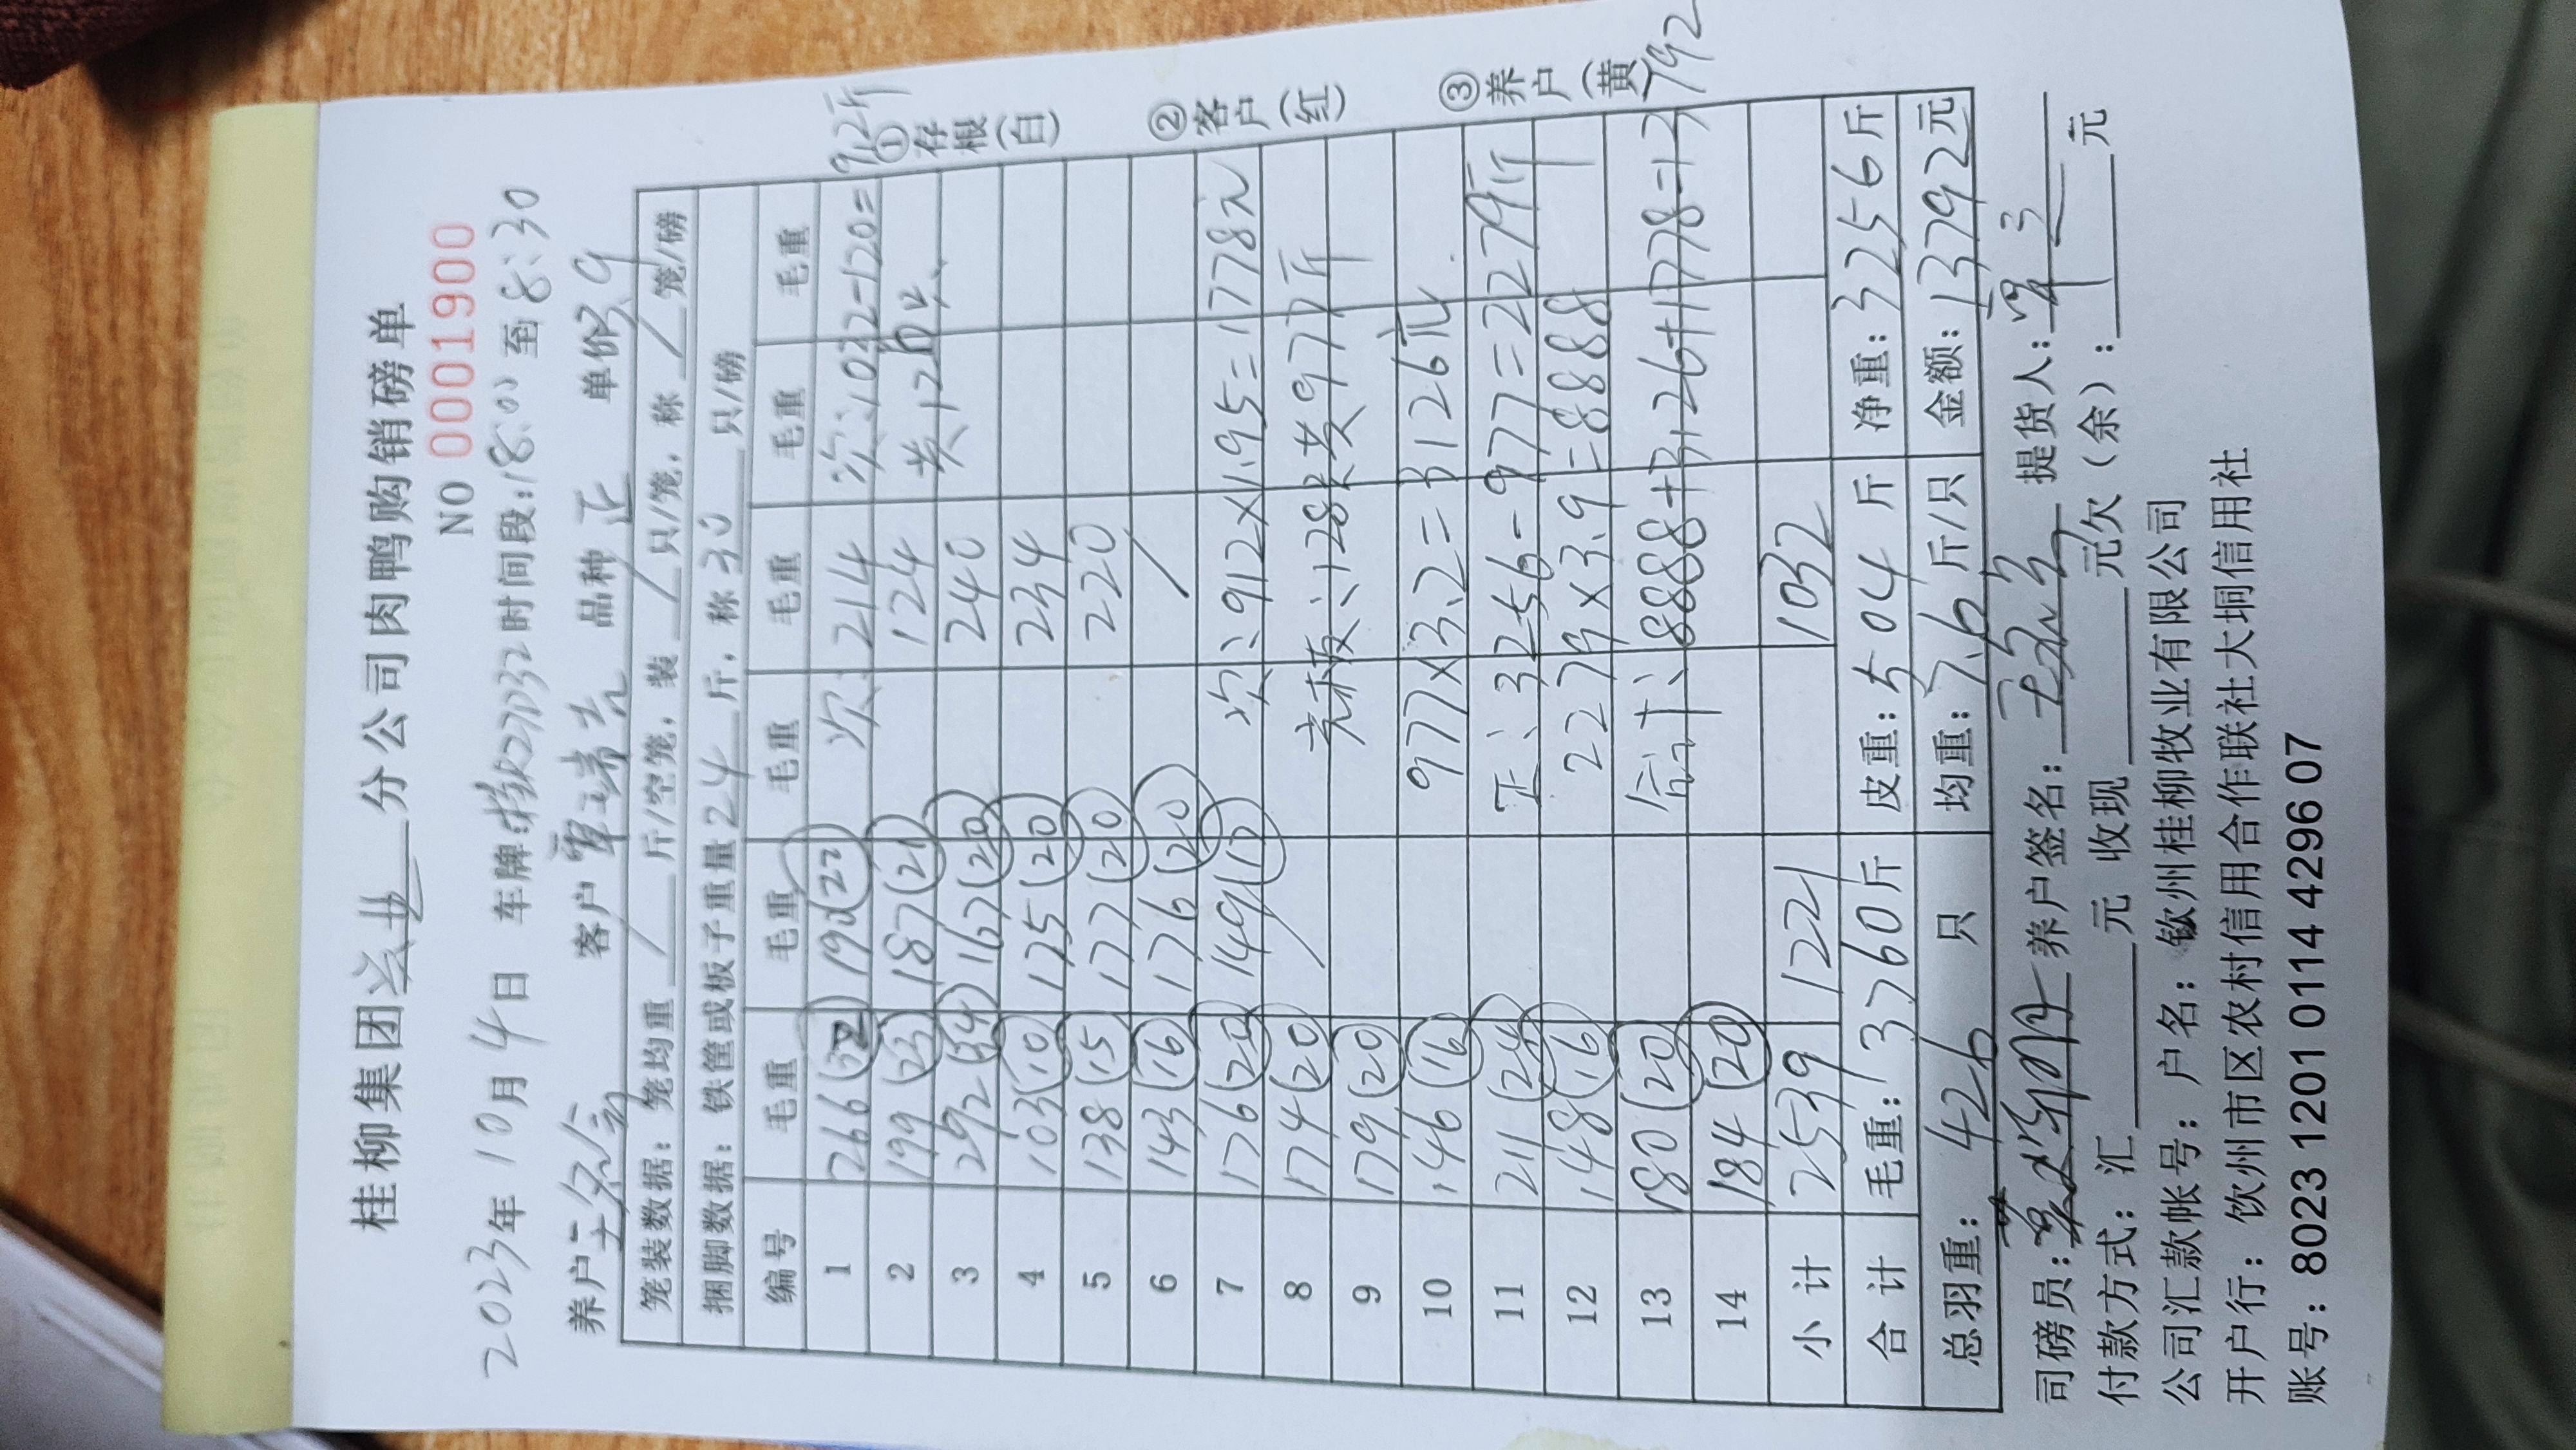 桂柳集团 分公司肉鸭购销磅单
NO 0001900
2023年 10月 4日 车牌: 27D32 时间段:18:00 至 8:30
养户 客户 覃瑞吉 品种 正 单价 3.9
笼装数据: 笼均重 / 斤/空笼, 装 / 只/笼, 称 / 笼/磅
捆脚数据: 铁筐或板子重量 224 斤, 称 30 只/磅
编号 毛重 毛重 毛重 毛重 毛重 毛重
1 266 (32) 190 (22) 次: 214 次:1032-120= 912斤
2 199 (23) 187 (21) 124 共:120斤
3 292 (34) 167 (20) 240
4 103 (10) 175 (20) 234
5 138 (15) 177 (20) 220
6 143 (16) 176 (20) /
7 176 (20) 149 (17) 次:912×1.95=1778元
8 174 (20) / 128只共977斤
9 179 (20)
10 146 (16) 977×3.2=3126元
11 211 (24) 正:3256-977=2279斤
12 148 (16) 2279×3.9=8888
13 180 (20) 合计:8888+3126+1778=13792
14 184 (20)
小计 2539 1221 1032
合计 毛重: 3760 斤 皮重: 504 斤 净重: 3256 斤
总羽重: 426 只 均重: 7.6 斤/只 金额: 13792 元
①存根(白) ②客户(红) ③养户(黄)
司磅员: 养户签名: 提货人:
付款方式: 汇____元 收现____元欠(余): ____元
公司汇款帐号: 户名: 钦州桂柳牧业有限公司
开户行: 钦州市区农村信用合作联社大垌信用社
账号: 8023 1201 0114 4296 07